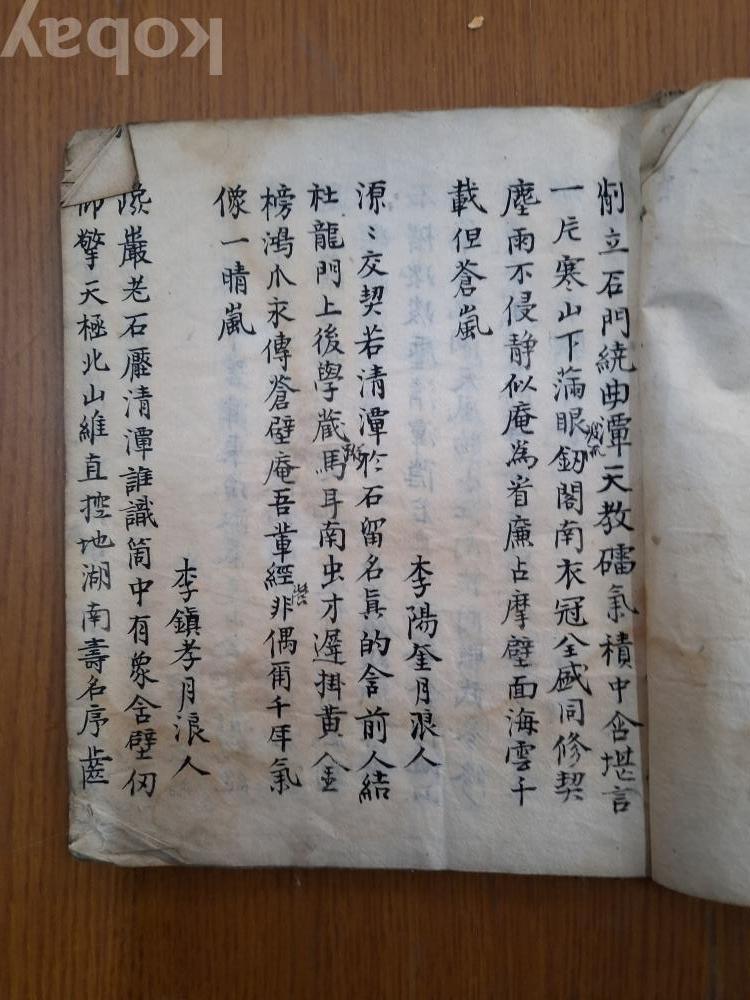 削立石門繞曲潭天教礌氣積中含堪言
一片寒山下滿眼釰閣南衣冠全盛同修契
塵雨不侵静似庵為省廉占摩壁面海雲千
載但蒼嵐
李陽奎月浪人
源〻交契若清潭於石留名眞的含前人結
社龍門上後學蔵馬耳南虫才遅掛黄金
榜鴻爪永傳蒼壁庵吾輩經非偶爾千年氣
像一晴嵐
李鎭孝月浪人
巖老石壓清潭誰識箇中有象含壁仞
擎天極北山維直控地湖南壽名序齒
kobay